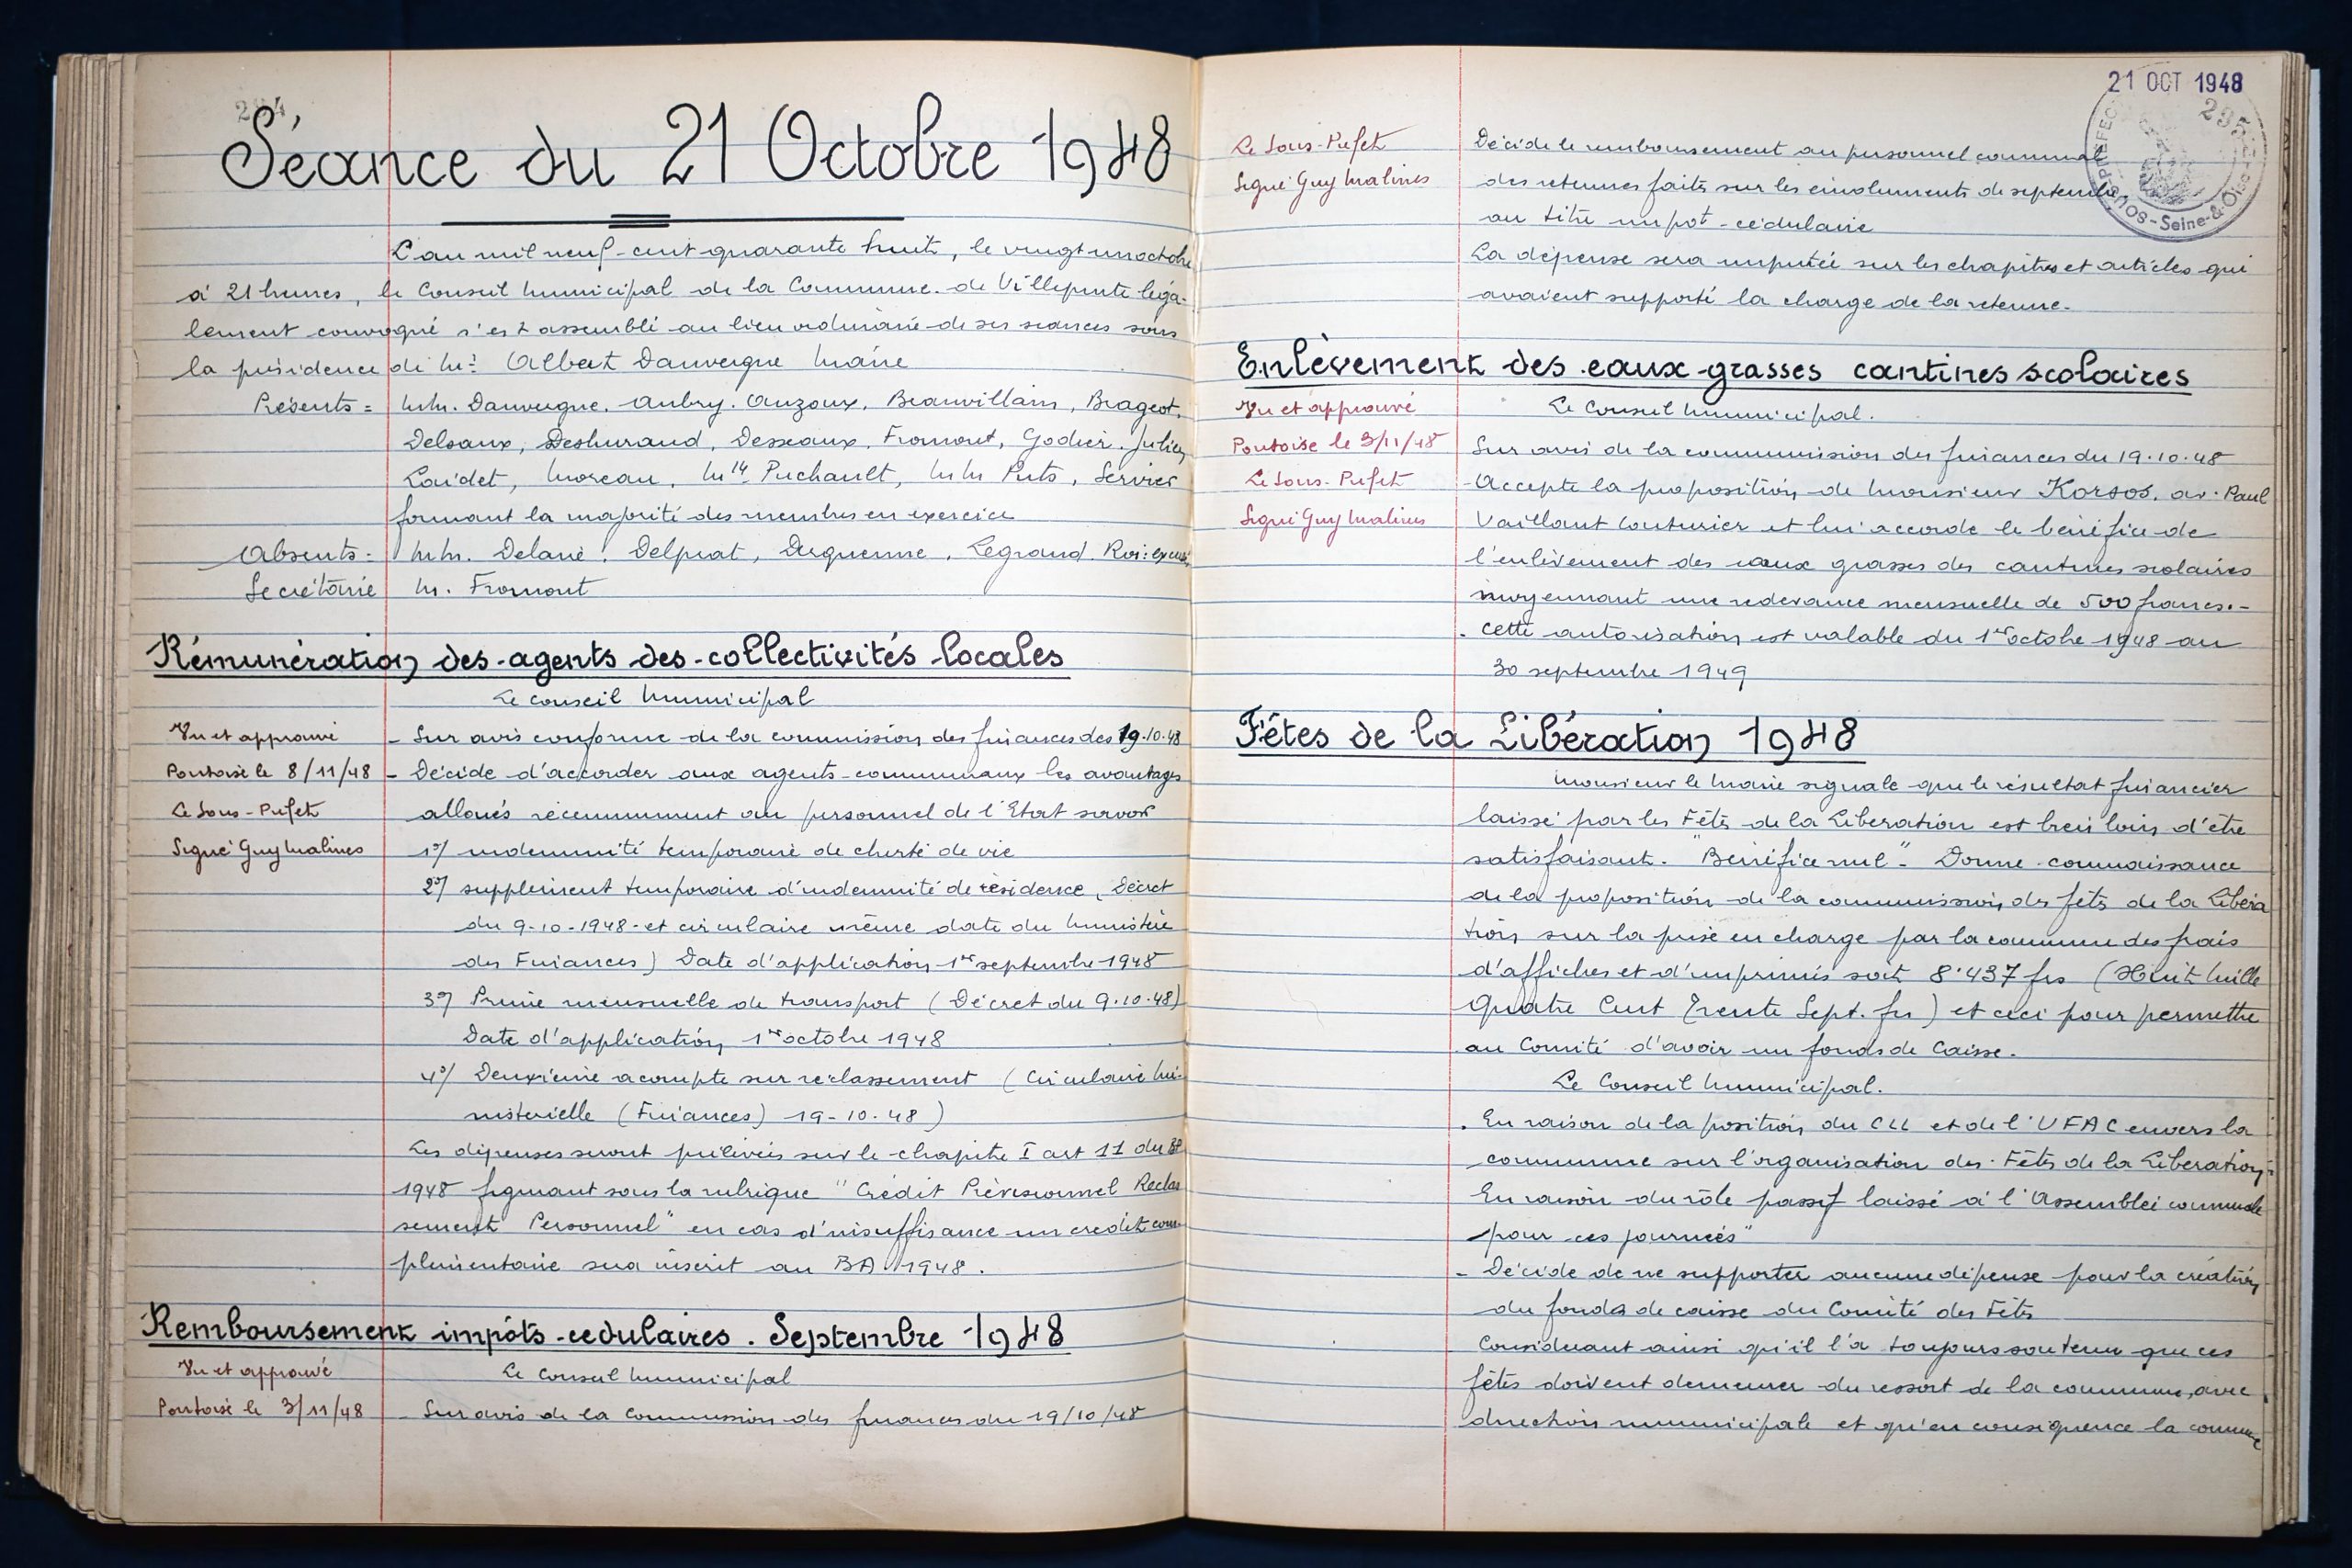 284
Séance du 21 Octobre 1948
L'an mil neuf-cent quarante huit, le vingt un octobre
à 21 heures, le Conseil Municipal de la Commune de Villepinte léga-
lement convoqué s'est assemblé au lieu ordinaire de ses séances sous
la présidence de Mr Albert Dauvergne Maire
Présents = MM. Dauvergne. Aubry. Auzoux, Beauvillain, Brageot,
Delsaux, Deshurand, Desseaux, Fromont, Godier. Julien
Laidet, Moreau, Mlle Puchault, MM Puts, Servies
formant la majorité des membres en exercice
Absents = MM. Delarue, Delprat, Duquenne, Legrand. Roi: excusés
Secrétaire M. Fromont
Rémunération des agents des collectivités locales
Le Conseil Municipal
Vu et approuvé - Sur avis conforme de la commission des finances des 19.10.48
Pontoise le 8/11/48 - Décide d'accorder aux agents communaux les avantages
Le Sous-Préfet alloués récemment au personnel de l'Etat savoir
Signé Guy Malines 1°/ indemnité temporaire de cherté de vie
2°/ supplément temporaire d'indemnité de résidence, Décret
du 9-10-1948 et circulaire même date du Ministère
des Finances) Date d'application 1er septembre 1948
3°/ Prime mensuelle de transport (Décret du 9.10.48)
Date d'application 1er octobre 1948
4°/ Deuxième acompte sur reclassement (Circulaire Mi-
nistérielle (Finances) 19-10.48)
Les dépenses seront prélevées sur le chapitre I art 11 du BP
1948 figurant sous la rubrique "Crédit Prévisionnel Reclas
sement Personnel" en cas d'insuffisance un crédit com-
plémentaire sera inscrit au BA 1948.
Remboursement impôts-cedulaires. Septembre 1948
Vu et approuvé Le Conseil Municipal
Pontoise le 3/11/48 - Sur avis de la Commission des finances du 19/10/48
21 OCT 1948
295
SOUS-PREFEC
Seine-&-Oise
Le Sous-Préfet Décide le remboursement au personnel communal
Signé Guy Malines des retenues faites sur les émoluments de septembre,
au titre impôt-cédulaire
La dépense sera imputée sur les chapitres et articles qui
avaient supporté la charge de la retenue.
Enlèvement des eaux-grasses cantines scolaires
Vu et approuvé Le Conseil Municipal.
Pontoise le 3/11/48 Sur avis de la commission des finances du 19.10.48
Le Sous-Préfet - Accepte la proposition de Monsieur Korsos, av. Paul
Signé Guy Malines Vaillant Couturier et lui accorde le bénéfice de
l'enlèvement des eaux grasses des cantines scolaires
moyennant une redevance mensuelle de 500 francs.-
. Cette autorisation est valable du 1er octobre 1948 au
30 septembre 1949
Fêtes de la Libération 1948
Monsieur le Maire signale que le résultat financier
laissé par les Fêtes de la Libération est bien loin d'être
satisfaisant. "Bénéfice nul". Donne connaissance
de la proposition de la commission des fêtes de la Libéra
tion sur la prise en charge par la commune des frais
d'affiches et d'imprimés soit 8.437 frs (Huit Mille
Quatre Cent Trente Sept. frs) et ceci pour permettre
au Comité d'avoir un fonds de Caisse.
Le Conseil Municipal.
. En raison de la position du CLL et de l'UFAC envers la
commune sur l'organisation des Fêtes de la Libération.
En raison du rôle passif laissé à l'Assemblée communale
pour ces journées"
- Décide de ne supporter aucune dépense pour la création
du fonds de caisse du Comité des Fêtes
Considérant ainsi qu'il l'a toujours soutenu que ces
fêtes doivent demeurer du ressort de la commune, avec
direction municipale et qu'en conséquence la commune